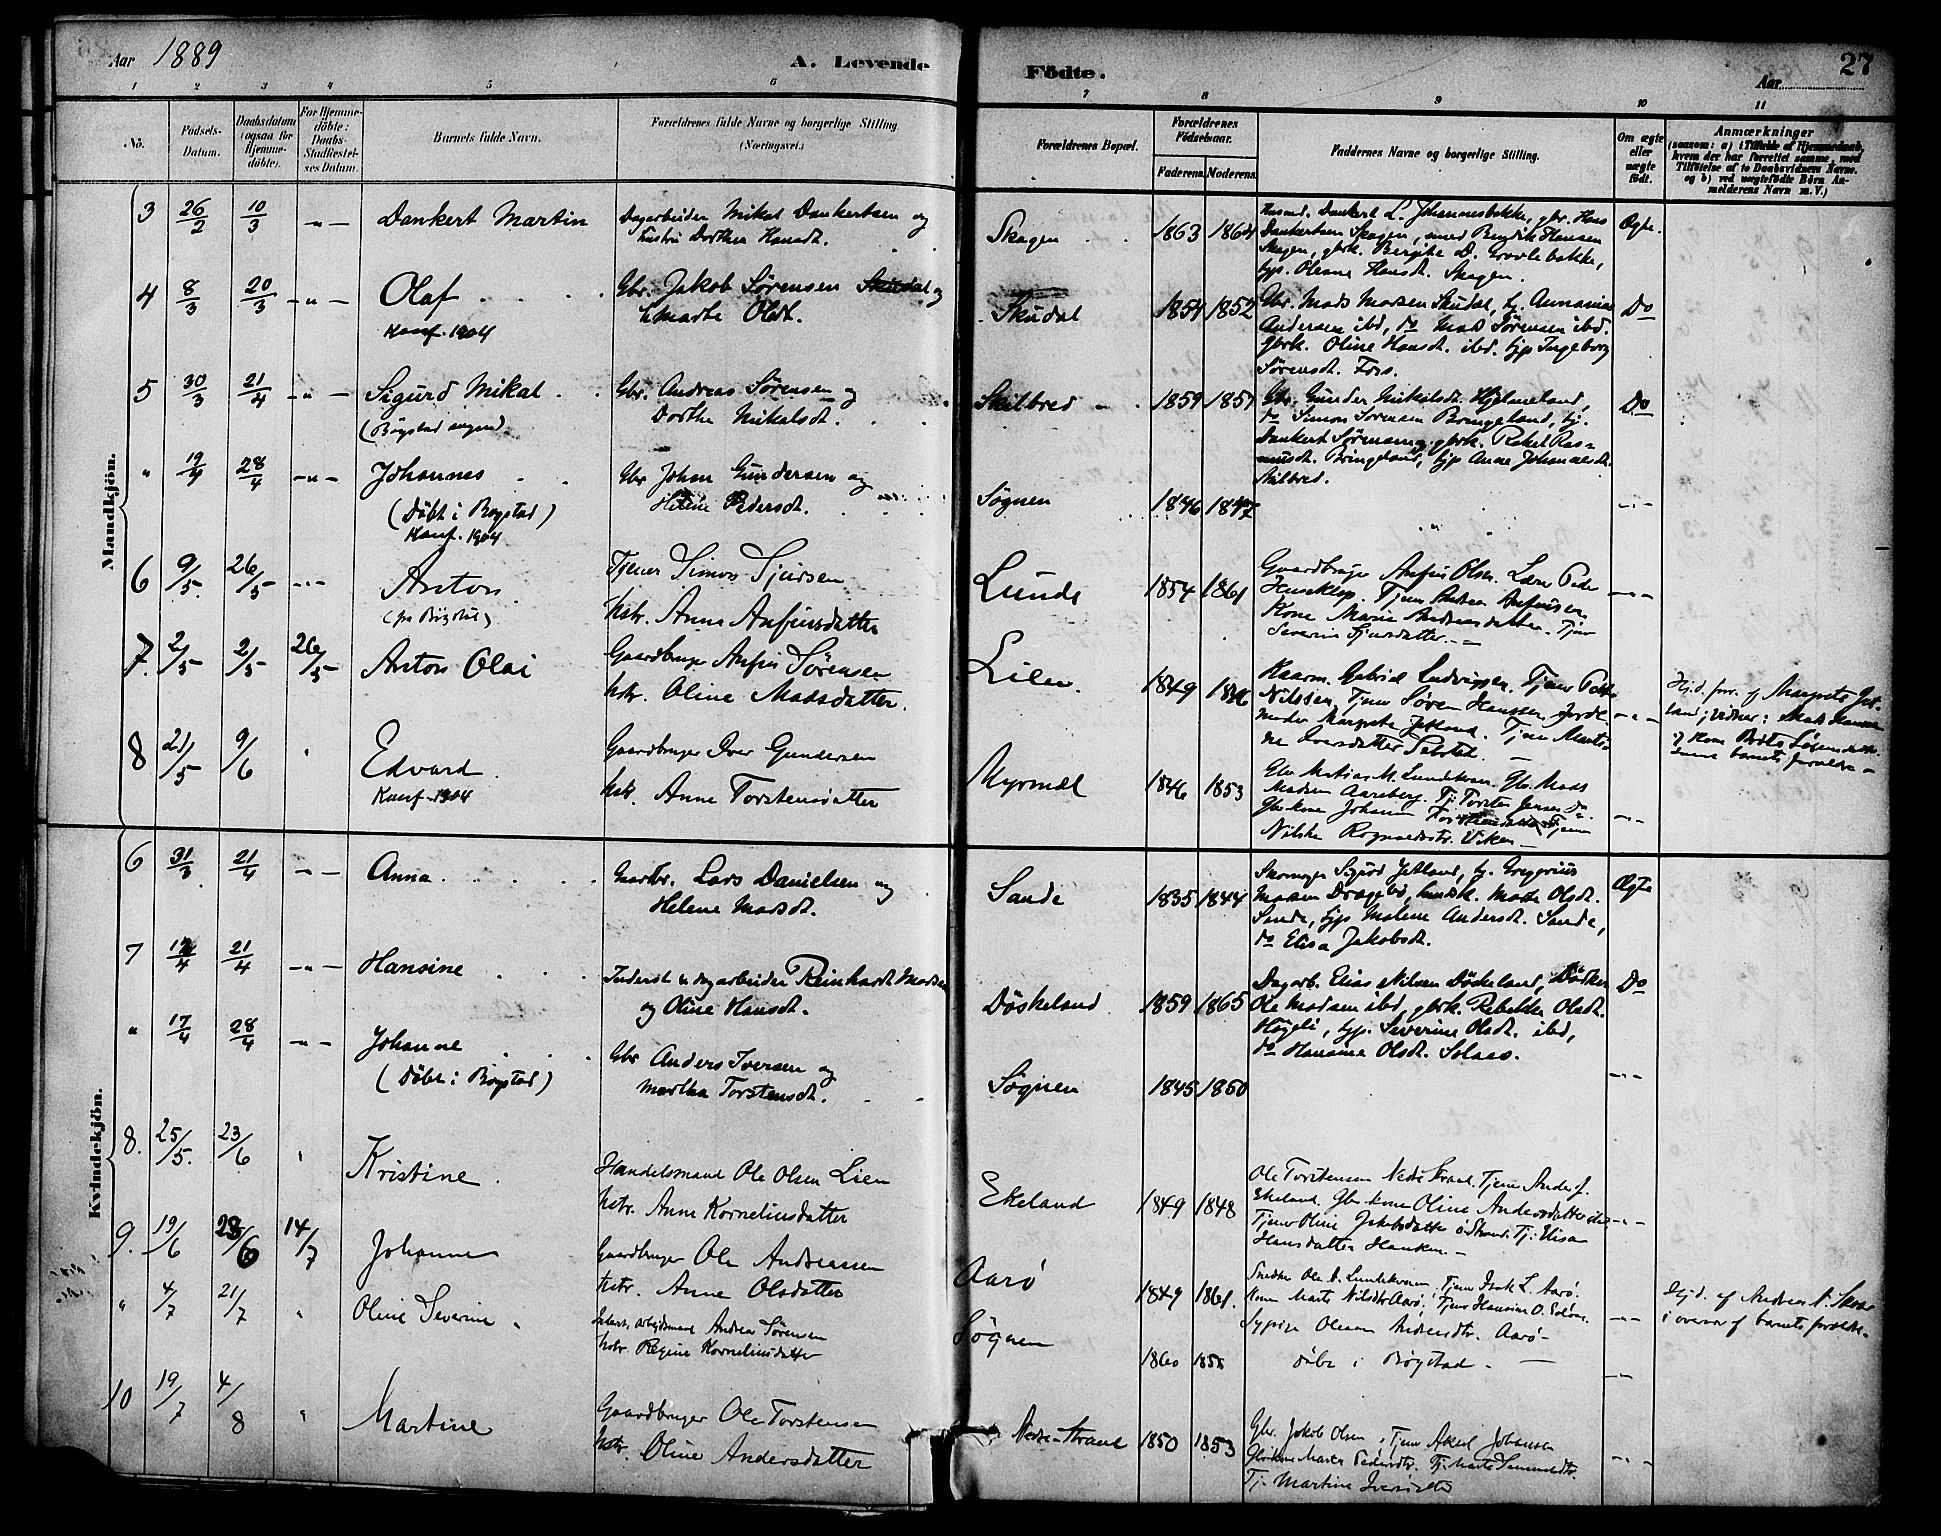 Aar 1889
A. Levende Födte.
Aar
27
1 2 3 4 5 6 7 8 9 10 11
No.
Födsels-
Datum.
Daabsdatum
(ogsaa for
Hjemme-
döbte).
For Hjemme-
döbte:
Daabs-
Stadfæstel-
ses Datum.
Barnets fulde Navn.
Forældrenes fulde Navne og borgerlige Stilling
(Næringsvei.)
Forældrenes Bopæl.
Forældrenes
Födselsaar.
Faderens. Moderens.
Faddernes Navne og borgerlige Stilling.
Om ægte
eller
uægte
født.
Anmærkninger
(saasom: a) i Tilfælde af Hjemmedaab,
hvem der har forrettet samme, med
Tilföielse af to Daabsvidners Navne,
og b) ved uægtefödte Börn An-
melderens Navn m. V.)
Mandkjön.
3 26/2 10/3 -"- Dankert Martin
Dagarbeider Mikal Dankertsen og
hustru Dorthea Hansdt.
Skogen 1863 1864
Husmd. Dankert L. Johannesbakke, gbr. Hans
Dankertsen Skogen, smed Bendik Hansen
Skogen, gbrk. Bergite D.
pge. Olesne Hansdt. Skogen.
Ægte.
4 8/3 20/3 -"- Olaf
Konf. 1904
Gbr. Jakob Sørensen Skudal og
h. Marte Olsdt.
Skudal 1854 1852
Gbr. Mads Madsen Skudal, tj. Annanias
Andersen ibd, do Mads Sørensen ibd.
gbrk. Oline Hansdt. ibd. pge Ingeborg
Sørensdt. Fors.
Do
5 30/3 21/4 -"- Sigurd Mikal
(Bøgstad sogn)
Gbr. Andreas Sørensen og
Dorthe Mikalsdt.
Skilbred 1859 1857
Gbr. Gunder Hjelmeland,
do Simon Sørensen Bringeland, tj.
Dankert Sørensen, gbrk. Rakel Ras-
musdt. Bringeland, pge Anne Johannesdt.
Skilbred.
Do
" 19/4 28/4 -"- Johannes
(Døbt i Bøgstad)
Konf. 1904
Gbr Johan Gundersen og
Helene Pedersdt.
Søgnen 1846 1847
"
-"-
6 9/5. 26/5 -"- Anton.
(fra Bøgstad)
Tjener Simon Sjursen
hstr. Anna Anfinsdatter
Lunde 1854 1861
Gaardbruger Anfin Olsen. Lærer Peder
Huseklep. Tjener Andreas Anfinsen
Kone Marie Andreasdatter. Tjener
Severine Sjursdatter.
-"-
7. 2/5 2/5 26/5 Anton Olai
Gaardbruger Anfin Sørensen
hstr. Oline Madsdatter.
Lien. 1849 1846
Kaarm. Gabriel Ludvigsen. Tjener Peder
Nilssen, Tjener Søren Hanssen, Jorde-
moder Margrete Jetland. Tjener Marti-
ne Iversdatter
-"-
Hj.d. forr. af Margrete Jet-
land; vidner: Mads Hansen
og Kone Berte Sørensdatter
samt barnets forældre -
8 21/5 9/6 " Edvard.
Konf. 1904
Gaardbruger Iver Gundersen
hstr. Anne Torstensdatter
Myrmel 1846 1853
Gbr Mathias M. Lundekvam. Gbr. Mads
Madsen Aareberg. Tj. Torsten Jensen do.
Gbr. kone Johanne Torstensdatter Tjener
Nilske Rognaldsdtr. Viken
-"-
Kvindekjön.
6 31/3 21/4 -"- Anna.
Gaardbr. Lars Danielsen og
Helene Madsdt.
Sande 1835 1844
Sigurd Jetland, tj. Gregorius
Madsen Dragebø, husmk. Marthe Olsdt.
Sande, pge Malene Andersdt. Sande,
do Elisa Jakobsdt.
Ægte
7 12/4 21/4 -"- Hansine
Inderst & dagarbeider Reinhardt Madsen
og Oline Hansdt.
Döskeland 1859 1865
Dagarb. Elias Nilsen Döskeland, Bödker
Ole Madsen ibd, gbrk. Rebekka Olsdt.
Høgeli, pge. Severine Olsdt. ibd,
do Hansine Olsdt. Solaas.
Do
" 17/4 28/4 -"- Johanne
(Døbt i Bøgstad)
Gbr Anders Iversen og
Martha Torstensdt.
Søgnen 1845 1860
-"-
8. 25/5. 23/6 " Kristine.
Handelsmand Ole Olsen Lien
hstr. Anne Kornelius datter
Ekeland 1849 1848
Ole Torstensen Nedre Strand. Tjener Anders J.
Ekeland. Gbr-kone Oline Andersdatter ibd
Tjener Oline Jakobsdatter ø. Strand. Tj. Elisa
Hansdatter Hanken.-
-"-
9. 19/6 23/6 14/7 Johanne
Gaardbruger Ole Andreassen
hstr. Anne Olsdatter
Aarø 1849 1861.
Snedker Ole A. Lundekvam, Tjener Isak L. Aarø.
Kone Marte Nilsdtr Aarø. Tjener Hansine O.
Sypige Olesen Andersdtr. Aarø-
-"-
Hj.d. af Andreas N.
i overvær af barnets forældre.
" 4/7 21/7 " Oline Severine
Inderst. arbejdsmand Andreas Sørensen
hstr. Regine Korneliusdatter
Søgnen
1860
døbt i Bøgstad. -
-"-
10 19/7 4/8 " Martine
Gaardbruger Ole Torstensen
hstr. Oline Andersdatter
Nedre-Strand 1850 1853
Gbr. Jakob Olsen, Tjener Aksel Johansen
Gbr.kone Marta Pedersdtr. Tj. Marte Samuelsdtr.
Tj. Martine Iversdtr
-"-